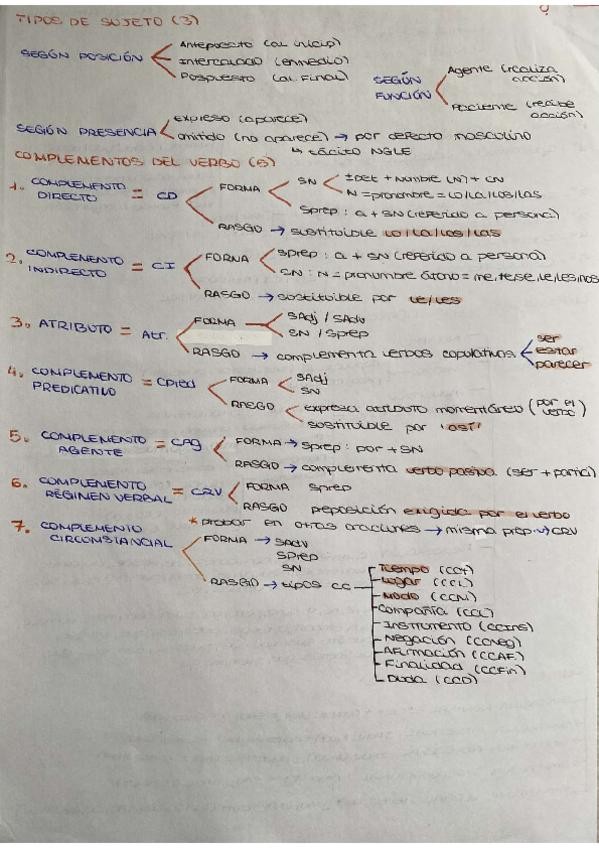 TIPOS DE SUJETO (3)
SEGÚN POSICIÓN
Antepuesto (al inicio)
Intercalado (enmedio)
Pospuesto (al final)
SEGÚN FUNCIÓN
Agente (realiza acción)
Paciente (recibe acción)
SEGÚN PRESENCIA
expreso (aparece)
omitido (no aparece) → por defecto masculino
↳ tácito NGLE
COMPLEMENTOS DEL VERBO
1. COMPLEMENTO DIRECTO = CD
FORMA
SN
±Det + Nombre (N) + CN
N = pronombre = lo/la/los/las
Sprep: a + SN (referido a persona)
RASGO → sustituible lo/la/los/las
2. COMPLEMENTO INDIRECTO = CI
FORMA
Sprep: a + SN (referido a persona)
SN: N = pronombre átono = me, te/se, le/les/nos
RASGO → sustituible por le/les
3. ATRIBUTO = Atr.
FORMA
SAdj / SAdv
SN / Sprep
RASGO → complementa verbos copulativos
ser
estar
parecer
4. COMPLEMENTO PREDICATIVO = CPred
FORMA
SAdj
SN
RASGO
expresa atributo momentáneo (por el verbo)
sustituible por "así"
5. COMPLEMENTO AGENTE = CAg
FORMA → Sprep: por + SN
RASGO → complementa verbo pasiva (ser + partici)
6. COMPLEMENTO RÉGIMEN VERBAL = CRV
FORMA Sprep
RASGO preposición exigida por el verbo
* probar en otras oraciones → misma prep. → CRV
7. COMPLEMENTO CIRCUNSTANCIAL
FORMA → SAdv
SPrep
SN
RASGO → tipos CC
Tiempo (CCT)
Lugar (CCL)
Modo (CCM)
Compañía
Instrumento (CCIns)
Negación (CCNeg)
Afirmación (CCAF)
Finalidad (CCFin)
Duda (CCD)